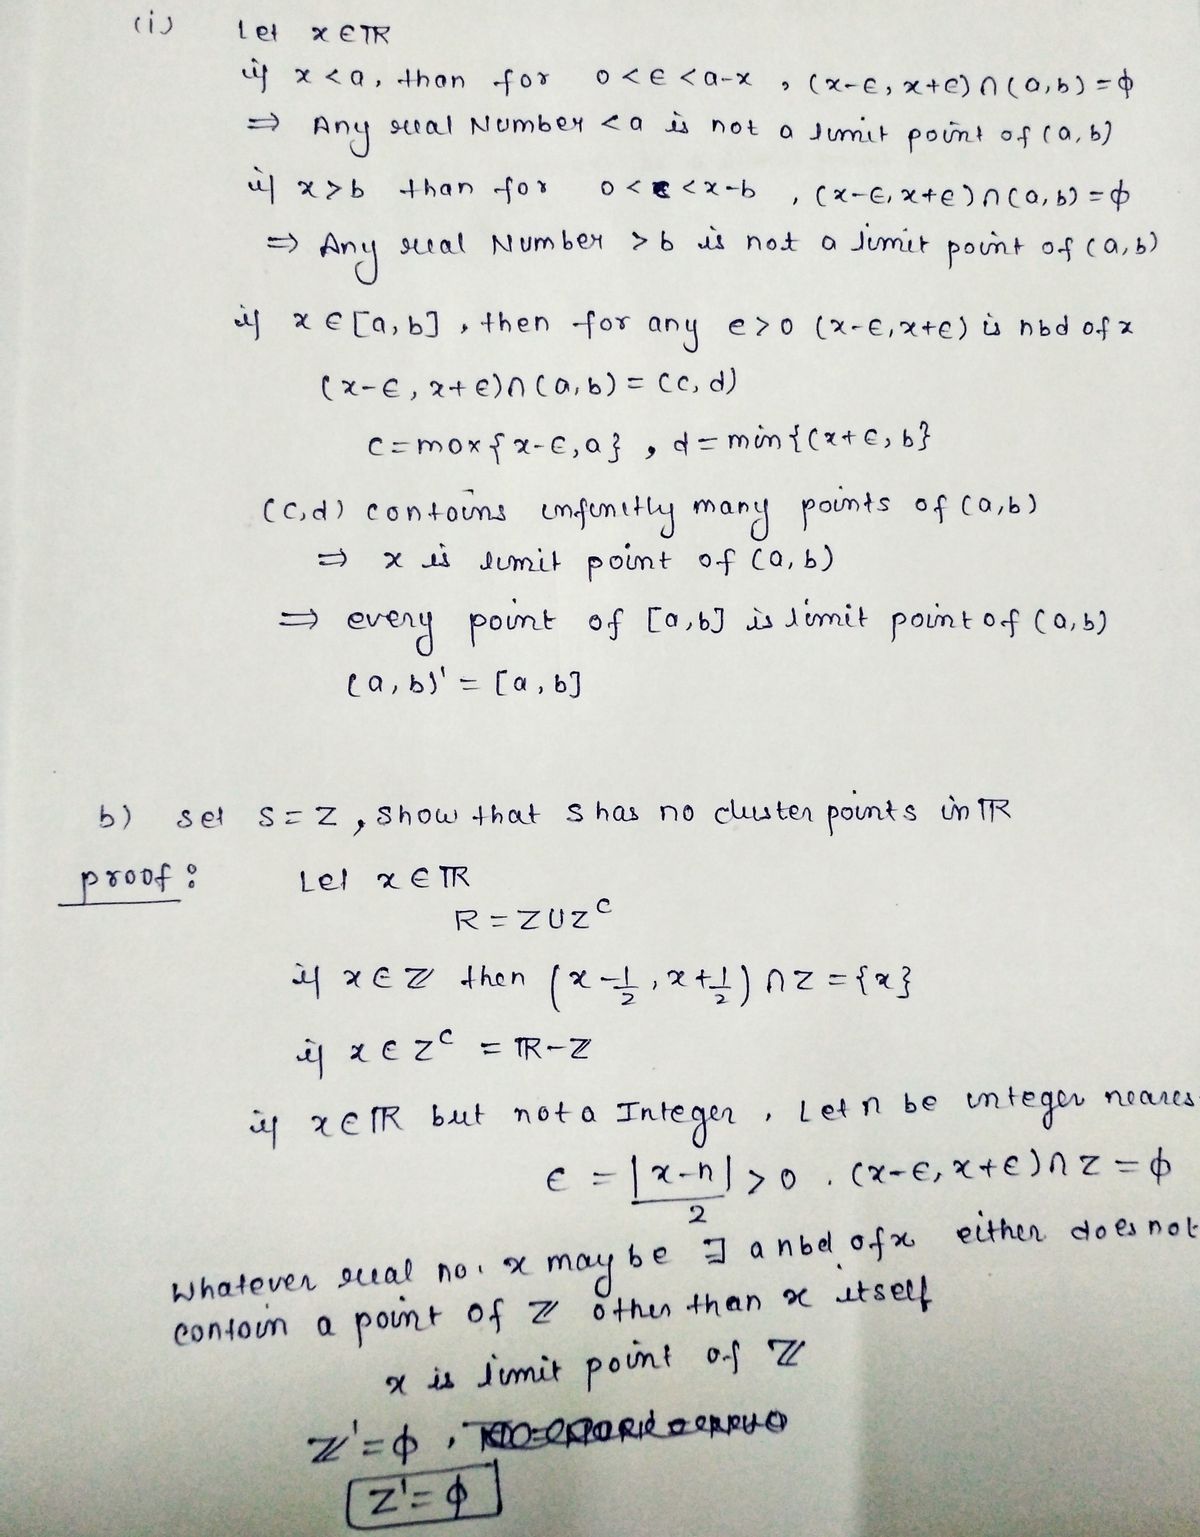 (i) Let x ∈ ℝ
if x < a, than for 0 < ϵ < a-x , (x-ϵ, x+e) ∩ (a,b) = ϕ
⇒ Any real Number < a is not a limit point of (a,b)
if x > b than for 0 < ϵ < x-b , (x-ϵ, x+e) ∩ (a,b) = ϕ
⇒ Any real Number > b is not a limit point of (a,b)
if x ∈ [a,b] , then for any e > 0 (x-ϵ, x+ϵ) is nbd of x
(x-ϵ, x+e) ∩ (a,b) = (c,d)
c = max{x-ϵ, a} , d = min{(x+ϵ, b}
(c,d) contains infinitly many points of (a,b)
⇒ x is limit point of (a,b)
⇒ every point of [a,b] is limit point of (a,b)
(a,b)' = [a,b]
b) set S = Z , show that S has no cluster points in ℝ
proof : Let x ∈ ℝ
R = Z ∪ Z^c
if x ∈ ℤ then (x - 1/2 , x + 1/2) ∩ Z = {x}
if x ∈ Z^c = ℝ - ℤ
if x ∈ ℝ but not a Integer , Let n be integer neares
ϵ = |x-n|/2 > 0 . (x-ϵ, x+ϵ) ∩ Z = ϕ
whatever real no. x may be ∃ a nbd of x either does not
contain a point of ℤ other than x itself
x is limit point of ℤ
ℤ' = ϕ ,
Z' = ϕ